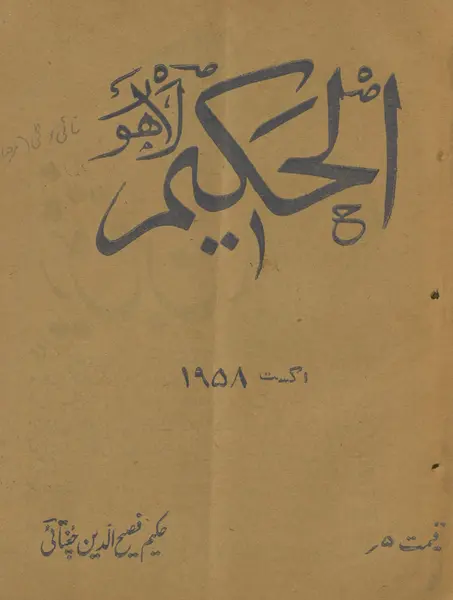 الحکیم لاہور
اگست ۱۹۵۸
قیمت ۵؍
حکیم فصیح الدین چغتائی